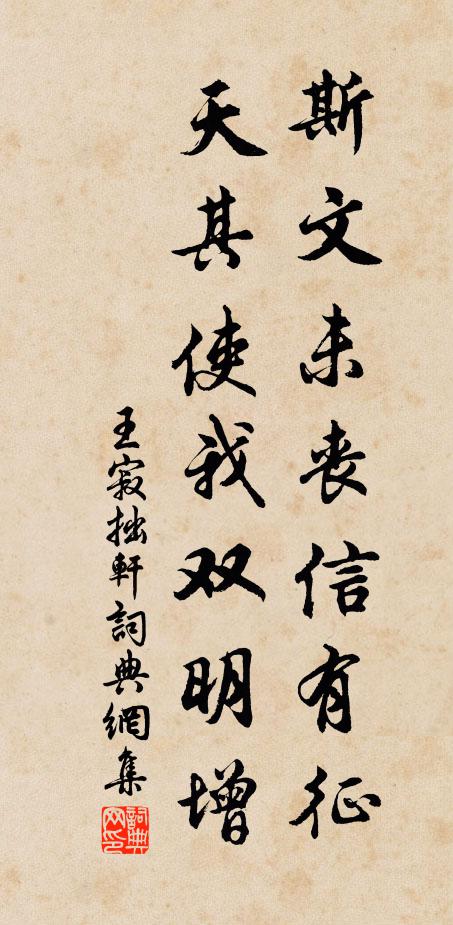 斯文未丧信有征
天其使我双明增
王寂拙軒詞典網集
詞典网印